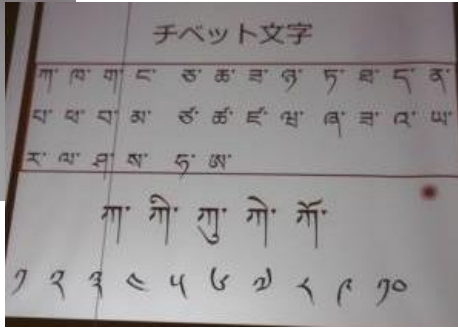 チベット文字
ཀ་ ཁ་ ག་ ང་ ཅ་ ཆ་ ཇ་ ཉ་ ཏ་ ཐ་ ད་ ན་
པ་ ཕ་ བ་ མ་ ཙ་ ཚ་ ཛ་ ཝ་ ཞ་ ཟ་ འ་ ཡ་
ར་ ལ་ ཤ་ ས་ ཧ་ ཨ་
ཀ་ ཀི་ ཀུ་ ཀེ་ ཀོ་
༡ ༢ ༣ ༤ ༥ ༦ ༧ ༨ ༩ ༡༠